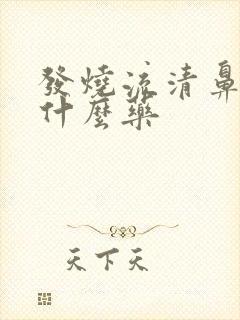 發燒流清鼻
什麼藥
天下天